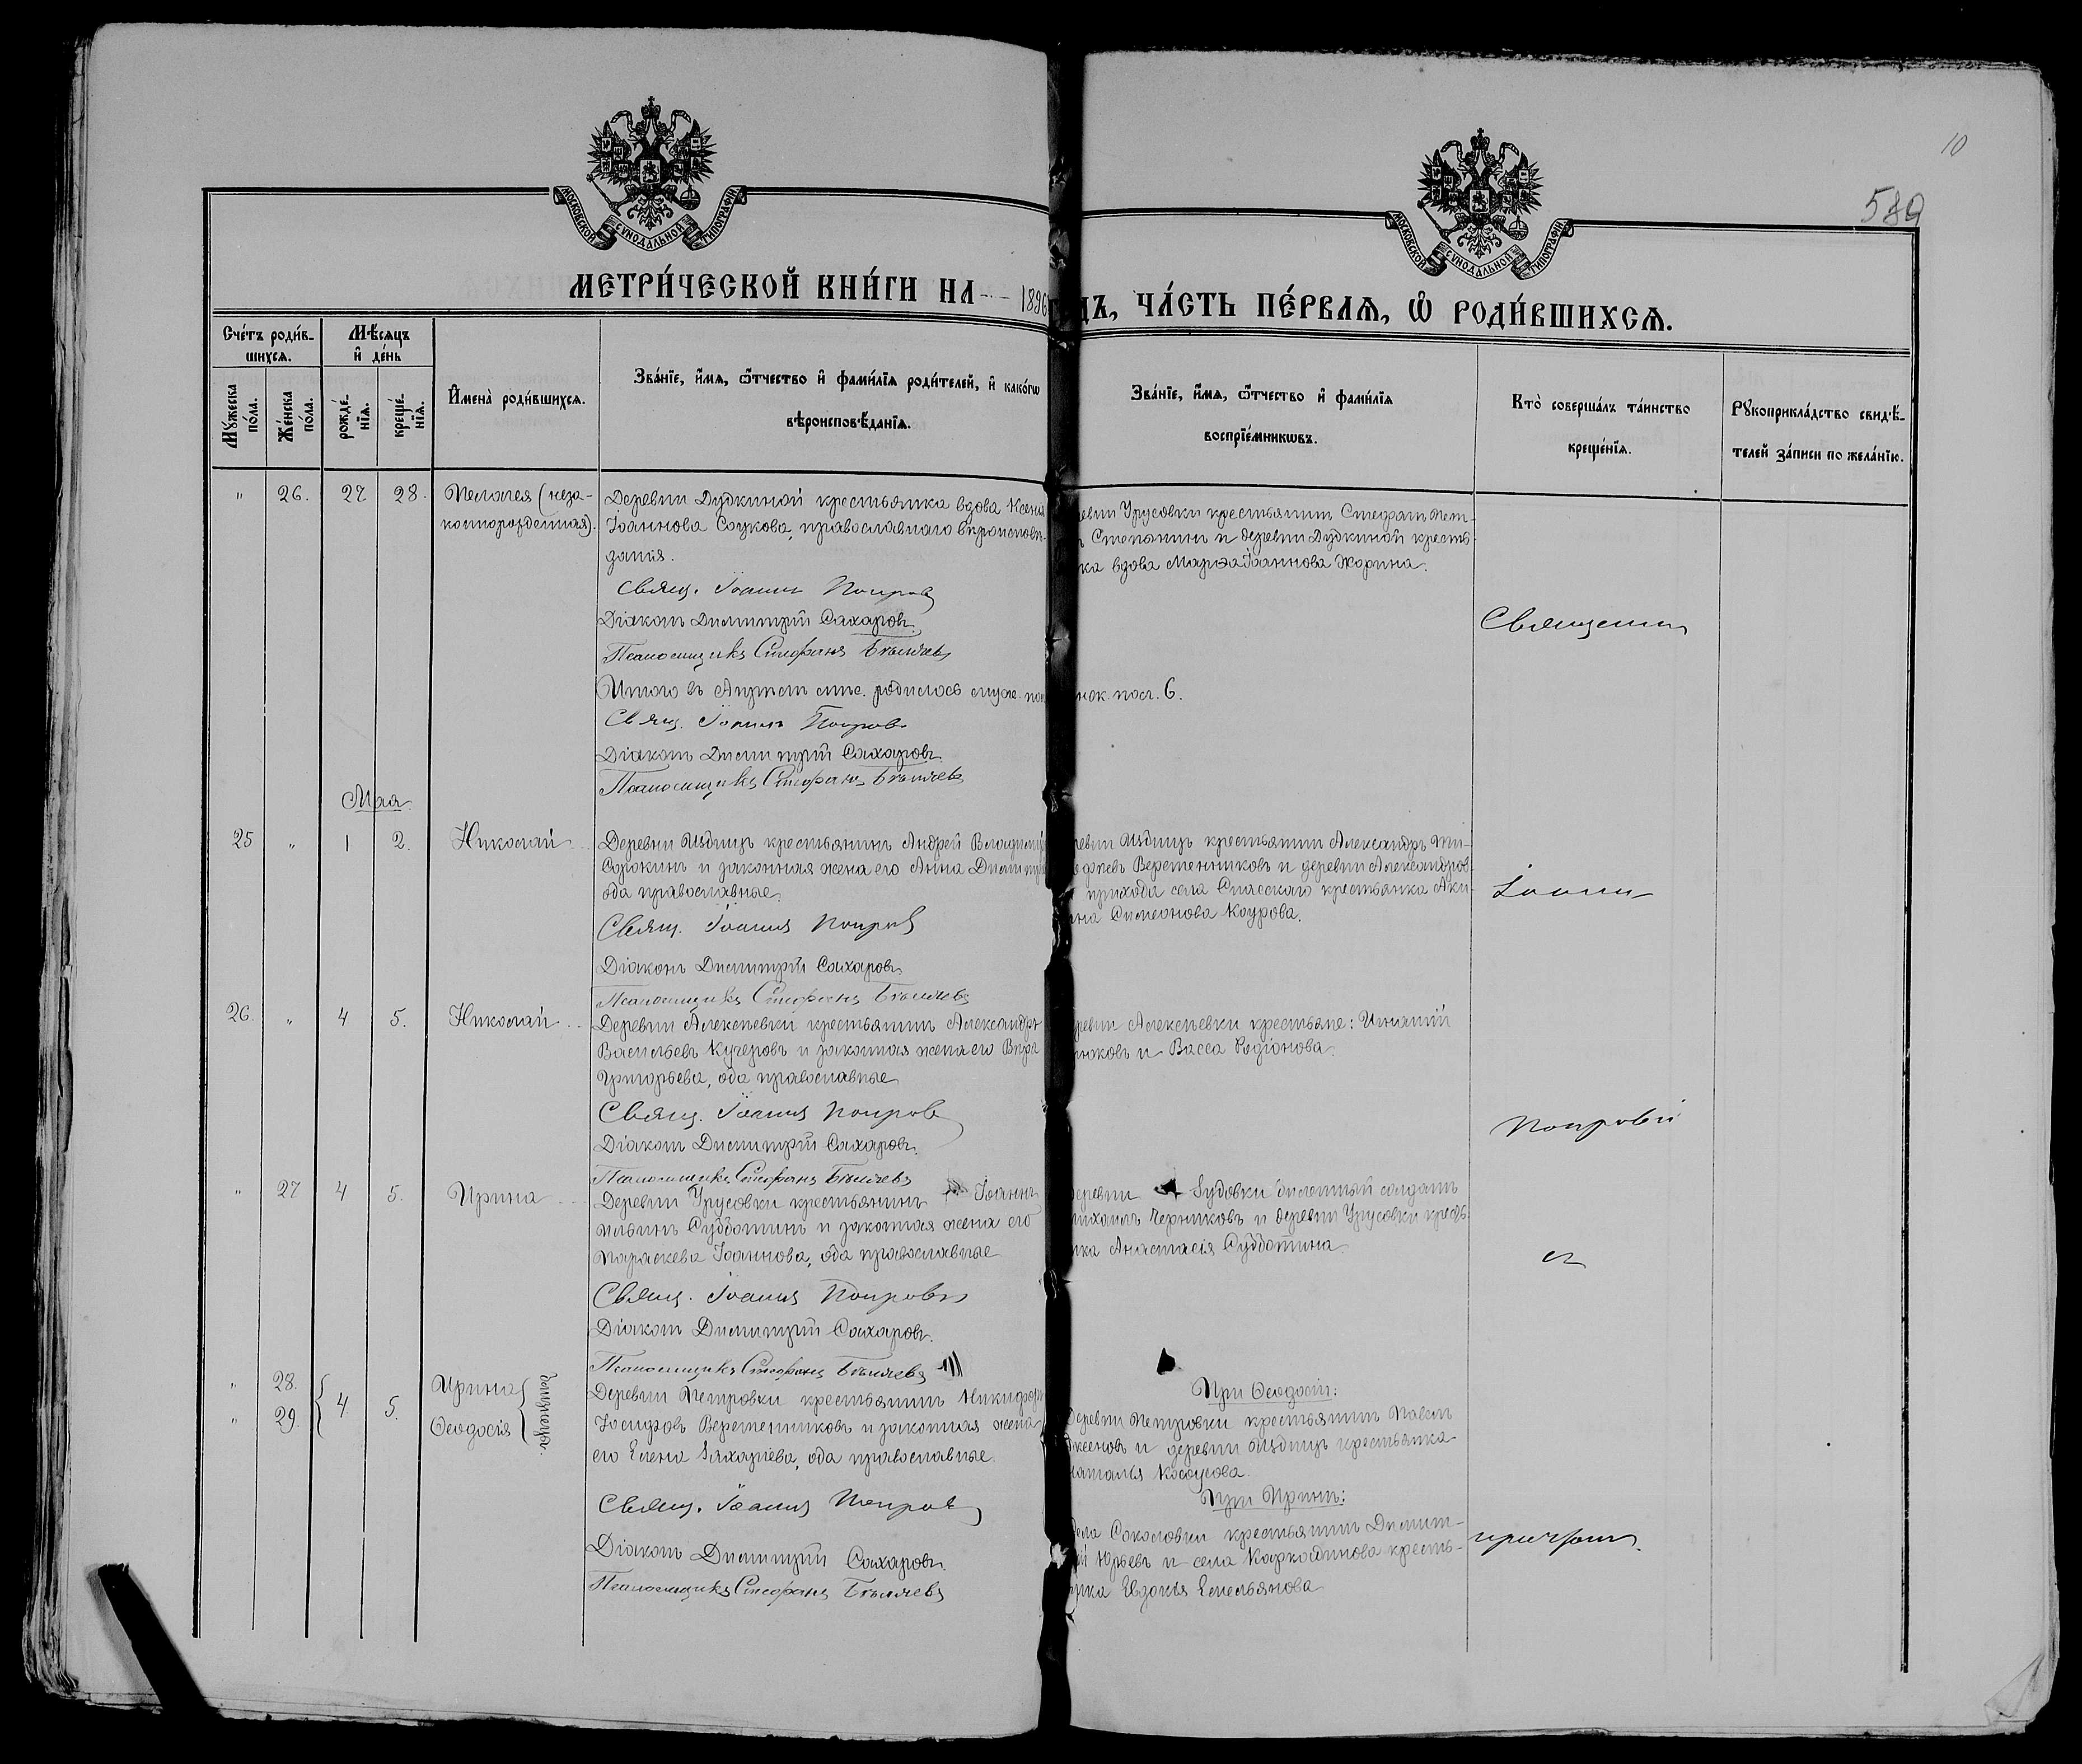 10
589
МОСКОВСКОЙ СѴНОДАЛЬНОЙ ТИПОГРАФІИ
МОСКОВСКОЙ СѴНОДАЛЬНОЙ ТИПОГРАФІИ
МЕТРИ́ЧЕСКОЙ КНИ́ГИ НА 1896
ДЪ, ЧА́СТЬ ПЕ́РВАЯ, Ѿ РОДИ́ВШИХСЯ.
Сче́тъ роди́в-
шихся.
Мѣ́сяцъ
и҆ де́нь
Мꙋ́жеска по́ла.
Же́нска по́ла.
рожде́-
нїя.
креще́-
нїя.
И҆мена̀ роди́вшихся.
Зва́нїе, и҆́мя, ѻ҆́тчество и҆ фами́лїя роди́телей, и҆ како́гѡ
вѣроисповѣ́данїя.
Зва́нїе, и҆́мя, ѻ҆́тчество и҆ фами́лїя
воспрїе́мникѡвъ.
Кто̀ соверша́лъ та́инство
креще́нїя.
Рꙋкоприкла́дство свидѣ́-
телей за́писи по жела́нїю.
" 26. 27 28. Пелагея (неза-
коннорожденная).
Деревни Дудкиной крестьянка вдова Ксенія
Іоаннова Саукова, православнаго вѣроисповѣ-
данія.
Свящ. Іоаннъ Покров
Діаконъ Димитрій Сахаровъ
Псаломщикъ Стефанъ Бѣляевъ
Итого въ Апрѣлѣ мѣс. родилось муж. пол
Свящ. Іоаннъ Покров
Діаконъ Димитрій Сахаровъ
Псаломщикъ Стефанъ Бѣляевъ
евни Урусовки крестьянинъ Стефанъ Пет-
ъ Степанинъ и деревни Дудкиной кресть-
ка вдова Марѳа Іоаннова Жорина.
нск. пол. 6.
Священник
Мая.
25 " 1 2. Николай
Деревни Издицъ крестьянинъ Андрей Владимір
Сорокинъ и законная жена его Анна Димитрі
оба православные.
Свящ. Іоаннъ Покров
Діаконъ Димитрій Сахаровъ
Псаломщикъ Стефанъ Бѣляевъ
ревни Издицъ крестьянинъ Александръ Ти-
оѳеевъ Веретенниковъ и деревни Александров-
прихода села Спасскаго крестьянка Аки-
ина Симеонова Каурова.
Іоанн
26. " 4 5. Николай
Деревни Алексѣевки крестьянинъ Александръ
Васильевъ Кучеровъ и законная жена его Вѣра
Григорьева, оба православные
Свящ. Іоаннъ Покров
Діаконъ Димитрій Сахаровъ
Псаломщикъ Стефанъ Бѣляевъ
ревни Алексѣевки крестьяне: Игнатій
нюковъ и Васса Родіонова.
Покровск
" 27 4 5. Ирина
Деревни Урусовки крестьянинъ Іоаннъ
Ильинъ Субботинъ и законная жена его
Параскева Іоаннова, оба православные
Свящ. Іоаннъ Покров
Діаконъ Димитрій Сахаровъ
Псаломщикъ Стефанъ Бѣляевъ
деревни Будовки билетный солдатъ
михаилъ Черниковъ и деревни Урусовки кресть
нка Анастасія Субботина.
съ
" 28.
" 29.
4 5.
Ирина
Ѳеодосія
близнецы.
Деревни Петровки крестьянинъ Никифоръ
Іосифовъ Веретенниковъ и законная жена
его Елена Захаріева, оба православные.
Свящ. Іоаннъ Покров
Діаконъ Димитрій Сахаровъ
Псаломщикъ Стефанъ Бѣляевъ
При Ѳеодосіи:
деревни Петровки крестьянинъ Павелъ
ксеновъ и деревни Издицъ крестьянка
наталья Косоусова.
При Иринѣ:
Села Соколовки крестьянинъ Димит-
ій Юрьевъ и села Каркадинова кресть-
нка Евдокія Емельянова
причтом